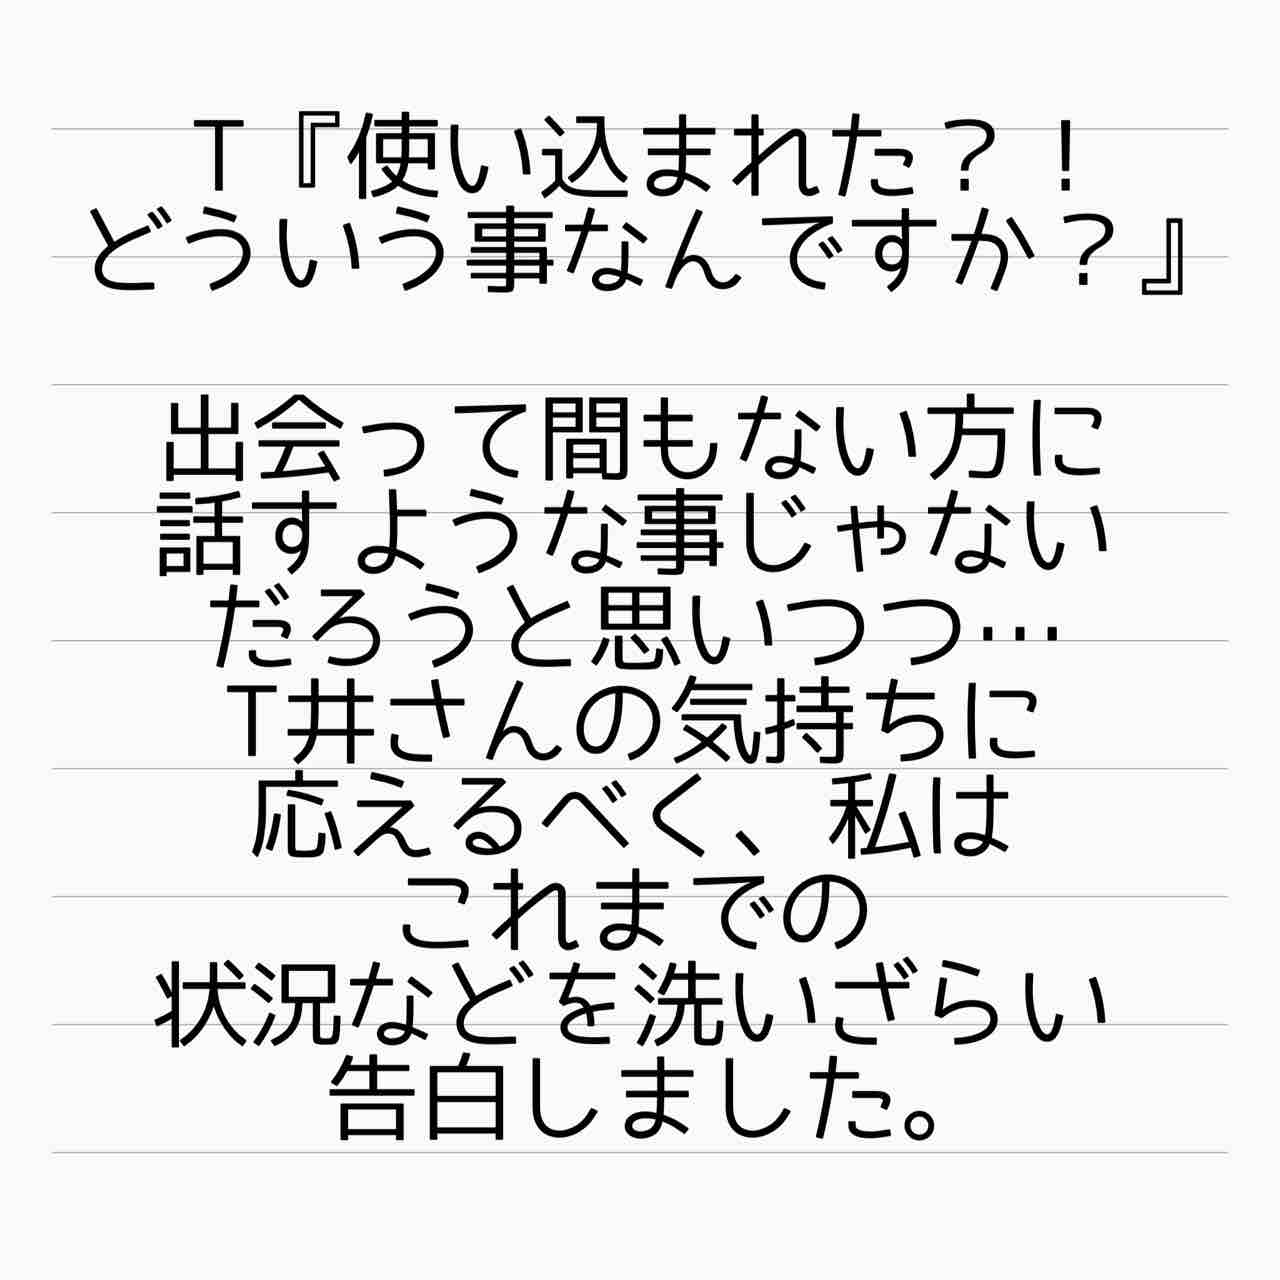 T『使い込まれた？！
どういう事なんですか？』
出会って間もない方に
話すような事じゃない
だろうと思いつつ…
T井さんの気持ちに
応えるべく、私は
これまでの
状況などを洗いざらい
告白しました。